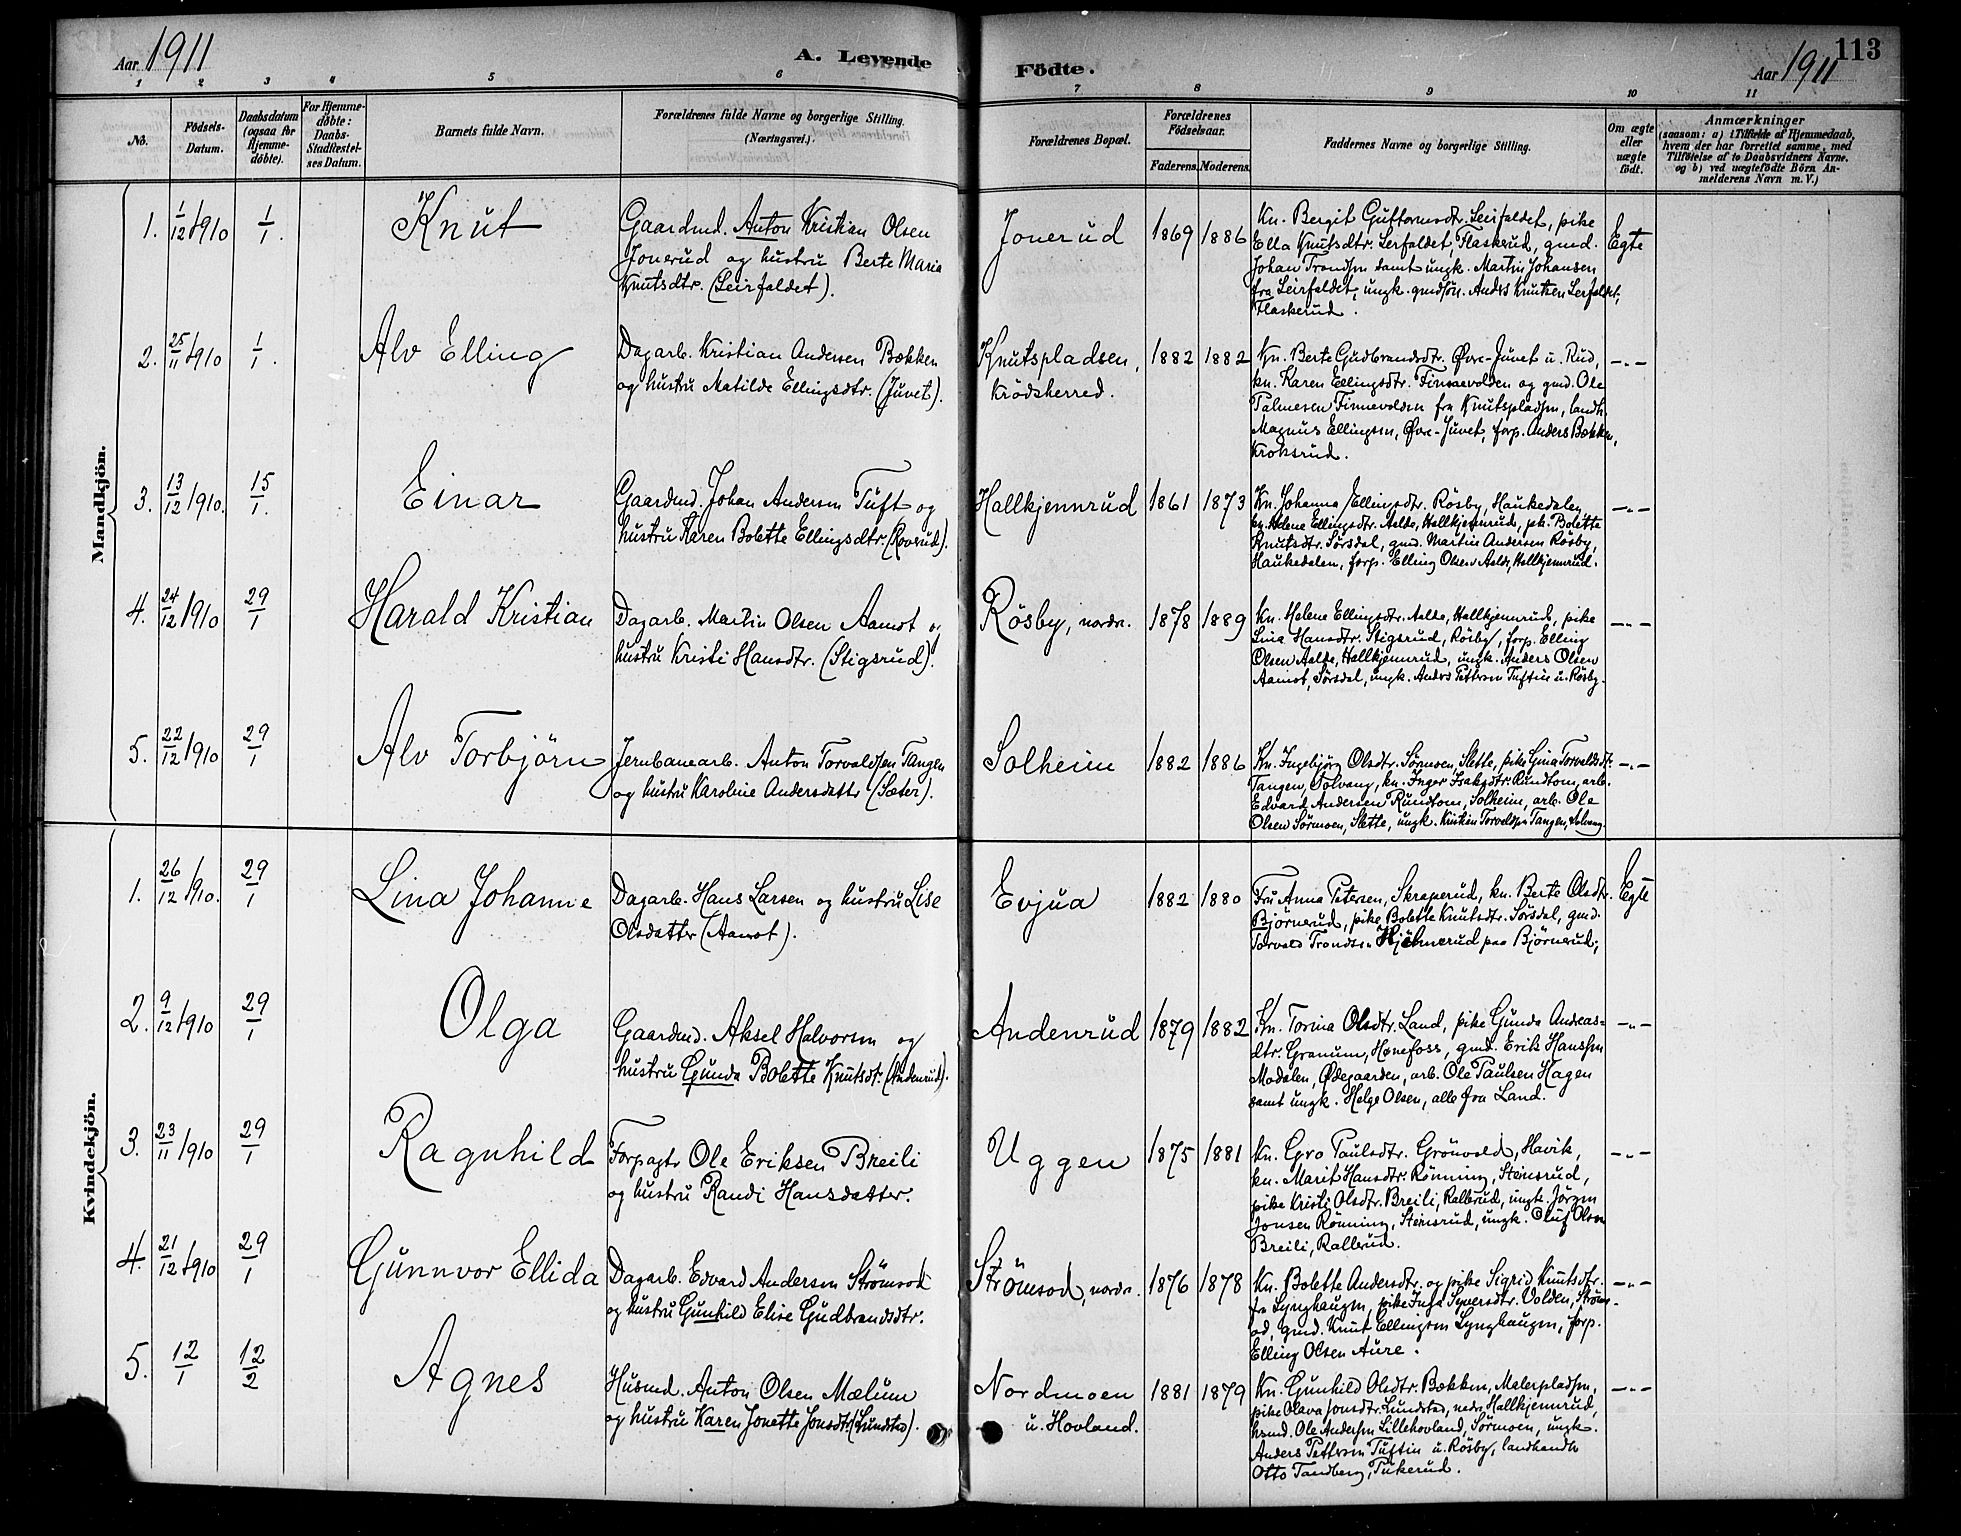 Aar 1911
A. Levende
Födte.
113
Aar 1911
1 2 3 4 5 6 7 8 9 10 11
No.
Födsels-
Datum.
Daabsdatum
(ogsaa for
Hjemme-
döbte).
For Hjemme-
döbte:
Daabs-
Stadfæstel-
ses Datum.
Barnets fulde Navn.
Forældrenes fulde Navne og borgerlige Stilling.
(Næringsvei.)
Forældrenes Bopæl.
Forældrenes
Födselsaar.
Faderens. Moderens.
Faddernes Navne og borgerlige Stilling.
Om ægte
eller
uægte
födt.
Anmærkninger
(saasom: a) i Tilfælde af Hjemmedaab,
hvem der har forrettet samme, med
Tilföielse af to Daabsvidners Navne,
og b) ved uægtefödte Börn An-
melderens Navn m. V.)
Mandkjön.
1. 1/12 1910 1/1. Knut
Gaardmd. Anton Kristian Olsen
Jonerud og hustru Berte Maria
Knutsdtr. (Leirfaldet).
Jonerud 1869 1886
Kn. Bergit Guttormsdtr. Leirfaldet, pike
Ella Knutsdtr. Leirfaldet, Flaskerud, gmd.
Johan Trondsen samt ungk. Martin Johansen
fra Leirfaldet, ungk. gmdsön. Anders Knutsen Leirfaldet,
Flaskerud.
Egte
2. 25/11 1910 1/1. Alv Elling
Dagarb. Kristian Andersen Bækken
og hustru Matilde Ellingsdtr. (Juvet).
Knutspladsen,
Krödsherred.
1882 1882
Kn. Berte Gudbrandsdtr. Øvre-Juvet u. Rud,
kn. Karen Ellingsdtr. Finnevolden og gmd. Ole
Palmesen Finnevolden fra Knutspladsen, landh.
Magnus Ellingsen, Øvre-Juvet, forp. Anders Bækken,
Kroksrud.
-"-
3. 13/12 1910. 15/1. Einar
Gaardmd. Johan Andersen Tuft og
hustru Karen Bolette Ellingsdtr. (Roverud).
Hallkjennrud 1861 1873
Kn. Johanna Ellingsdtr. Rösby, Haukedalen,
kn. Helene Ellingsdtr. Aalde, Hallkjennrud, pk. Bolette
Knutsdtr. Sörsdal, gmd. Martin Andersen Rösby,
Haukedalen, forp. Elling Olsen Aalde, Hallkjennrud.
-"-
4. 24/12 1910 29/1 Harald Kristian
Dagarb. Martin Olsen Aamot og
hustru Kristi Hansdtr. (Stigsrud).
Rösby, nordr. 1878 1889
Kn. Helene Ellingsdtr. Aalde, Hallkjennrud, pike
Lina Hansdtr. Stigsrud, Rösby, forp. Elling
Olsen Aalde, Hallkjennrud, ungk. Anders Olsen
Aamot, Sörsdal, ungk. Anders Pettersen Tuftin u. Rösby.
-"-
5. 22/12 1910 29/1 Alv Torbjörn
Jernbanearb. Anton Torvaldsen Tangen
og hustru Karoline Andersdatter (Sæter).
Solheim 1882 1886
Kn. Ingebjörg Olsdtr. Sörmoen, Slette, pike Gina Torvaldsdtr.
Tangen, Solvang, kn. Inger Isaksdtr. Rundtom, arb.
Edvard Andersen Rundtom, Solheim, arb. Ole
Olsen Sörmoen, Slette, ungk. Kristian Torvaldsen Tangen, Solvang.
-"-
Kvindekjön.
1. 26/12 1910. 29/1 Lina Johanne
Dagarb. Hans Larsen og hustru Lise
Olsdatter (Aamot).
Evjua 1882 1880
Fru Anna Petersen, Skraperud, kn. Berte Olsdtr.
Björnerud, pike Bolette Knutsdtr. Sörsdal, gmd.
Torvald Trondsen Hjelmerud paa Björnerud;
Egte
2. 9/12 1910 29/1 Olga
Gaardmd. Aksel Halvorsen og
hustru Gunda Bolette Knutsdtr. (Andenrud).
Andenrud 1879 1882
Kn. Torina Olsdtr. Land, pike Gunda Andreas-
dtr. Granum, Hønefoss, gmd. Erik Hanssen
Modalen, Ødegaarden, arb. Ole Paulsen Hagen
samt ungk. Helge Olsen, alle fra Land.
-"-
3. 23/11 1910 29/1 Ragnhild
Forpagter Ole Eriksen Breili
og hustru Randi Hansdatter.
Uggen 1875 1881
Kn. Gro Paulsdtr. Grönvold, Havik,
kn. Marit Hansdtr. Rönning, Stensrud,
pike Kristi Olsdtr. Breili, Rallerud, ungk. Jörgen
Jonsen Rönning, Stensrud, ungk. Oluf Olsen
Breili, Rallerud.
-"-
4. 21/12 1910 29/1 Gunnvor Ellida
Dagarb. Edvard Andersen Strömsod
og hustru Gunhild Elise Gudbrandsdtr.
Strömsod, nordr. 1876 1878
Kn. Bolette Andersdtr. og pike Sigrid Knutsdtr.
fr. Lynghaugen, pike Inga Syversdtr. Volden, Ström-
sod, gmd. Knut Ellingsen Lynghaugen, forp.
Elling Olsen Aure.
-"-
5. 12/1 12/2 Agnes
Husmd. Anton Olsen Mælum
og hustru Karen Jonette Jonsdtr. (Lundsted).
Nordmoen
u. Hovland.
1881 1879
Kn. Gunhild Olsdtr. Bækken, Malerpladsen,
pike Olava Jonsdtr. Lundsted, nedre Hallkjennrud,
husmd. Ole Andersen Lillehovland, Sörmoen, ungk.
Anders Pettersen Tuftin u. Rösby, landhandler
Otto Tandberg, Tukerud.
-"-